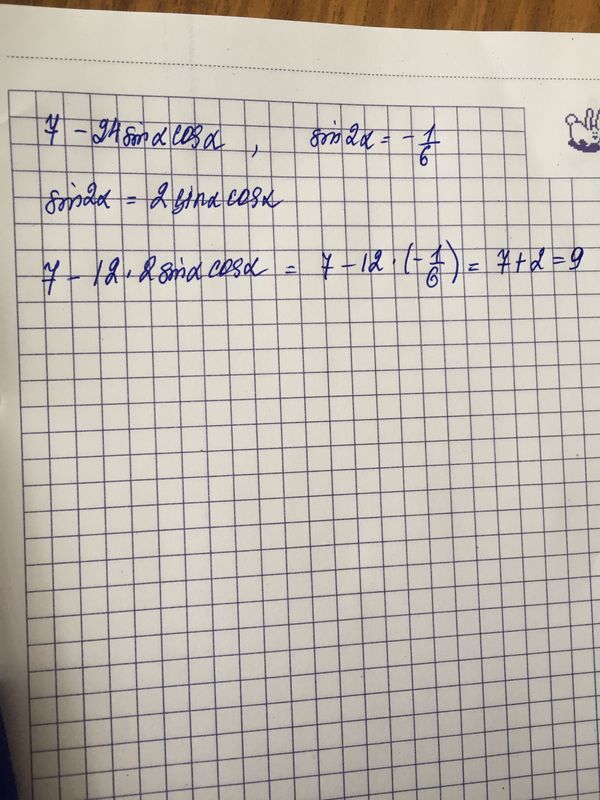 7 - 24 sinα cosα , sin2α = -1/6
sin2α = 2 sinα cosα
7 - 12 · 2 sinα cosα = 7 - 12 · (-1/6) = 7 + 2 = 9